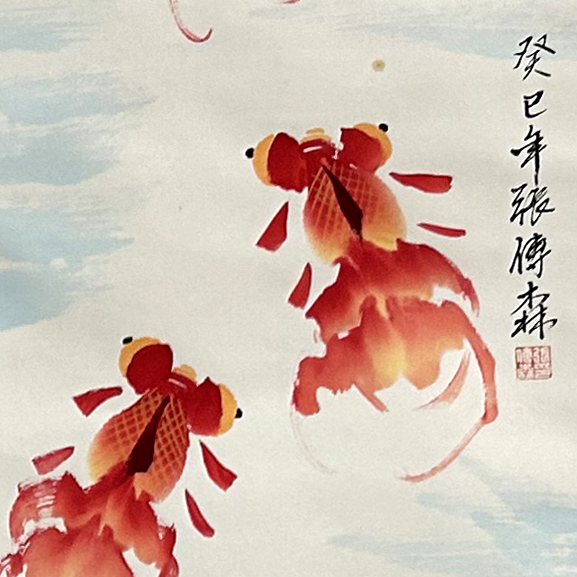 癸巳年張傳森